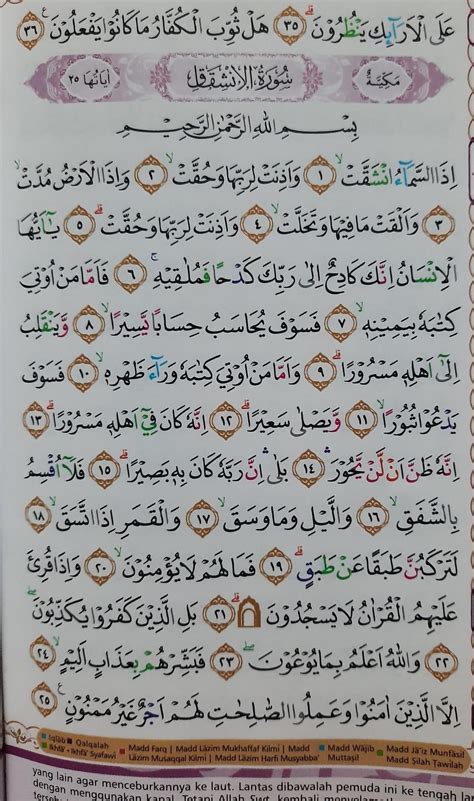 عَلَى الْاَرَاۤىِٕكِ يَنْظُرُوْنَۗ ٣٥ هَلْ ثُوِّبَ الْكُفَّارُ مَا كَانُوْا يَفْعَلُوْنَ ࣖ ٣٦
مَكِّيَّةٌ سُوْرَةُ الْاِنْشِقَاقِ اٰيَاتُهَا ٢٥
بِسْمِ اللّٰهِ الرَّحْمٰنِ الرَّحِيْمِ
اِذَا السَّمَاۤءُ انْشَقَّتْۙ ١ وَاَذِنَتْ لِرَبِّهَا وَحُقَّتْۙ ٢ وَاِذَا الْاَرْضُ مُدَّتْۙ
٣ وَاَلْقَتْ مَا فِيْهَا وَتَخَلَّتْۙ ٤ وَاَذِنَتْ لِرَبِّهَا وَحُقَّتْۗ ٥ يٰٓاَيُّهَا
الْاِنْسَانُ اِنَّكَ كَادِحٌ اِلٰى رَبِّكَ كَدْحًا فَمُلٰقِيْهِۚ ٦ فَاَمَّا مَنْ اُوْتِيَ
كِتٰبَهٗ بِيَمِيْنِهٖۙ ٧ فَسَوْفَ يُحَاسَبُ حِسَابًا يَّسِيْرًاۙ ٨ وَّيَنْقَلِبُ
اِلٰٓى اَهْلِهٖ مَسْرُوْرًاۗ ٩ وَاَمَّا مَنْ اُوْتِيَ كِتٰبَهٗ وَرَاۤءَ ظَهْرِهٖۙ ١٠ فَسَوْفَ
يَدْعُوْا ثُبُوْرًاۙ ١١ وَّيَصْلٰى سَعِيْرًاۗ ١٢ اِنَّهٗ كَانَ فِيْٓ اَهْلِهٖ مَسْرُوْرًاۗ ١٣
اِنَّهٗ ظَنَّ اَنْ لَّنْ يَّحُوْرَۛ ١٤ بَلٰىۛ اِنَّ رَبَّهٗ كَانَ بِهٖ بَصِيْرًاۗ ١٥ فَلَآ اُقْسِمُ
بِالشَّفَقِۙ ١٦ وَالَّيْلِ وَمَا وَسَقَۙ ١٧ وَالْقَمَرِ اِذَا اتَّسَقَۙ ١٨
لَتَرْكَبُنَّ طَبَقًا عَنْ طَبَقٍۗ ١٩ فَمَا لَهُمْ لَا يُؤْمِنُوْنَۙ ٢٠ وَاِذَا قُرِئَ
عَلَيْهِمُ الْقُرْاٰنُ لَا يَسْجُدُوْنَ ۩ ۗ ٢١ بَلِ الَّذِيْنَ كَفَرُوْا يُكَذِّبُوْنَۖ
٢٢ وَاللّٰهُ اَعْلَمُ بِمَا يُوْعُوْنَۖ ٢٣ فَبَشِّرْهُمْ بِعَذَابٍ اَلِيْمٍۙ ٢٤
اِلَّا الَّذِيْنَ اٰمَنُوْا وَعَمِلُوا الصّٰلِحٰتِ لَهُمْ اَجْرٌ غَيْرُ مَمْنُوْنٍ ࣖ ٢٥
Iqlāb Qalqalah Madd Farq | Madd Lāzim Mukhaffaf Kilmi | Madd Madd Wājib Madd Jā'iz Munfaṣil
Ikhfā' Ikhfā' Syafawi Lāzim Musaqqal Kilmi | Madd Lāzim Harfi Musyabba' Muttaṣil Madd Ṣilah Ṭawīlah
yang lain agar menceburkannya ke laut. Lantas dibawalah pemuda ini ke tengah l
dengan menggunakan kapal. Tetapi Allah Swt. kembali